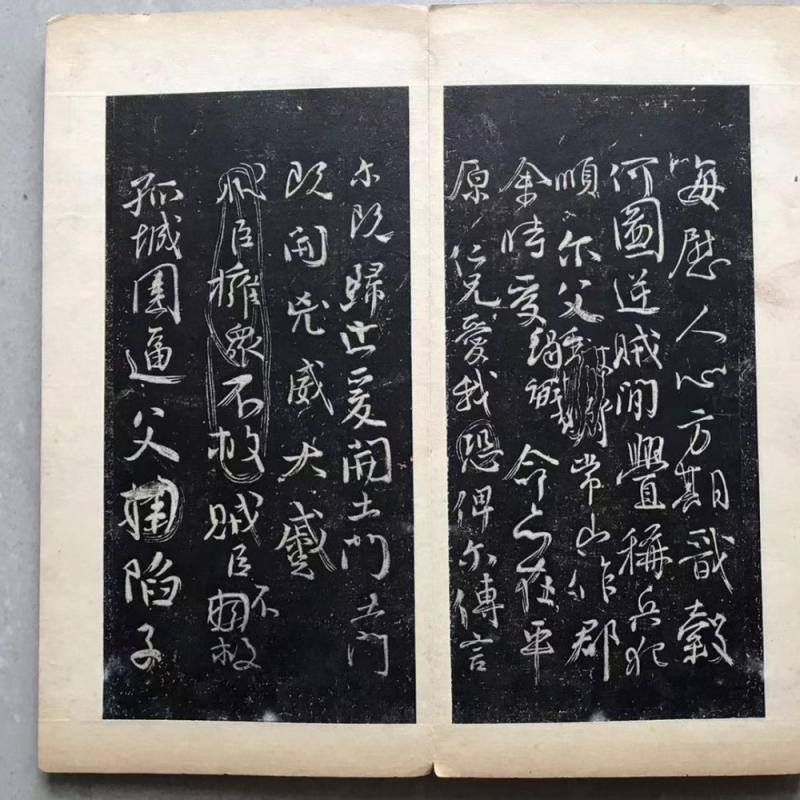 每慰人心方期戩穀
何圖逆賊閒釁稱兵犯
順尔父常山作郡
余時受命亦在平
原仁兄愛我恐俾尔傳言
尔既歸止爰開土門土門
既開兇威大蹙
臣擁眾不救賊臣不救
孤城圍逼父陷子